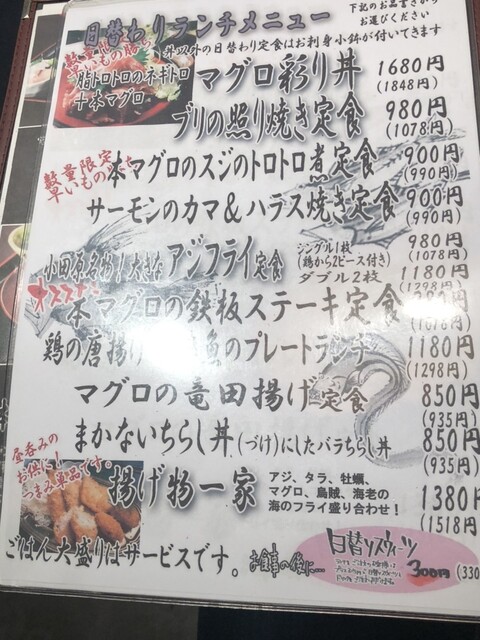 下記のお品書きから
お選びください
日替わりランチメニュー
丼以外の日替わり定食はお刺身小鉢が付いてきます
数量
早いもの勝ち
脂トロトロのネギトロ
十本マグロ
マグロ彩り丼 1680円
(1848円)
ブリの照り焼き定食 980円
(1078円)
数量限定
早いもの勝ち
本マグロのスジのトロトロ煮定食 900円
(990円)
サーモンのカマ&ハラス焼き定食 900円
(990円)
小田原名物!大きなアジフライ定食
シングル1枚 980円
(鶏から2ピース付き) (1078円)
ダブル2枚 1180円
(1298円)
オススメ
本マグロの鉄板ステーキ定食 980円
(1078円)
鶏の唐揚げ 魚のプレートランチ 1180円
(1298円)
マグロの竜田揚げ定食 850円
(935円)
まかないちらし丼(づけ)にしたバラちらし丼 850円
(935円)
昼呑みの
お供に!
つまみ単品です。
揚げ物一家
アジ、タラ、牡蠣、
マグロ、烏賊、海老の
海のフライ盛り合わせ!
1380円
(1518円
ごはん大盛りはサービスです。
お食事の後に…
日替りスイーツ
300円 (330